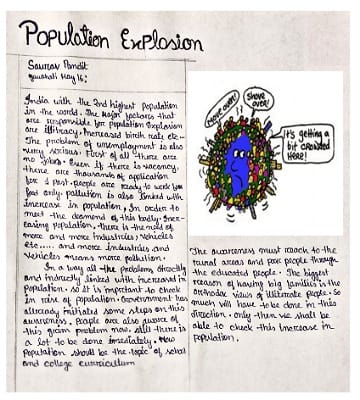 Population Explosion
Saurav Pandit
Guwahati May 16:
India with the 2nd highest population
in the world. The major factors that
are responsible for population explosion
are illitracy, Increased birth rate etc--
The problem of unemployment is also
very serious. First of all there are
no jobs. Even if there is vacancy,
there are thousands of application
for 1 post. people are ready to work for
food only. pollution is also linked with
increase in population. In order to
meet the demand of this badly incre-
easing population, there is the need of
more and more industries, vehicles
etc..... and more industries and
vehicles means more pollution.
In a way all the problems directly
and indirectly linked with increased in
population. so it is important to check
in raise of population. Government has
already initiated some steps on this
awareness. People are also aware of
this grim problem now. still there is
a lot to be done imediately. Now
population should be the topic of school
and college curriculum
MOVE OVER!
SHOVE
OVER!
It's getting a
bit crowded
HERE!
The awareness must reach to the
rural areas and poor people through
the educated people. The biggest
reason of having big families is the
orthodox views of illiterate people. So
much will have to be done in this
direction. only then we shall be
able to check this increase in
population.